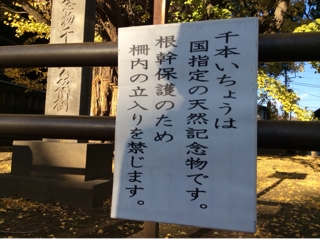 千本いちょうは
国指定の天然記念物です。
根幹保護のため
柵内の立入りを禁じます。